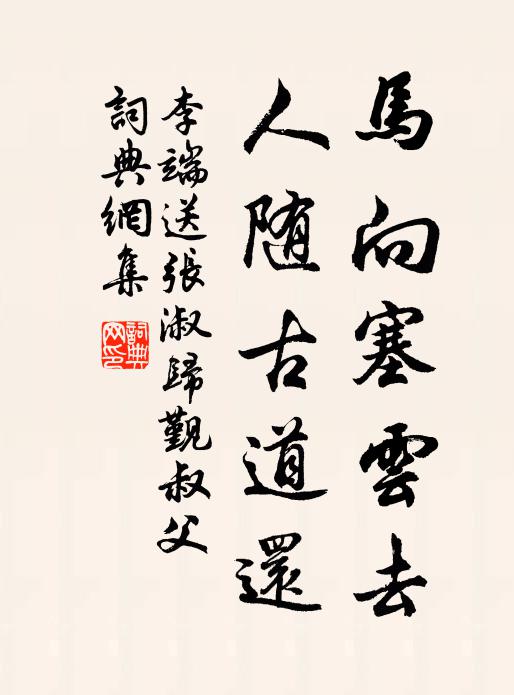 馬向塞雲去
人随古道還
李端送張淑歸覲叔父
詞典網集
詞典网印